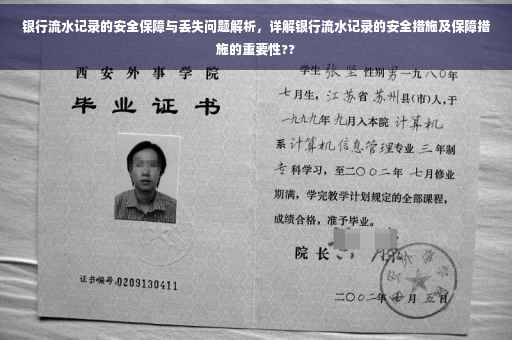 银行流水记录的安全保障与丢失问题解析，详解银行流水记录的安全措施及保障措
施的重要性??
西安外事学院
毕业证书
证书编号:0209130411
学生张坚性别男一九八〇年
七月生，江苏省苏州县(市)人,于
一九九九年九月入本院计算机
系计算机信息管理专业三年制
专科学习，至二〇〇二年七月修业
期满，学完教学计划规定的全部课程，
成绩合格，准予毕业。
院长
二〇〇二年七月五日